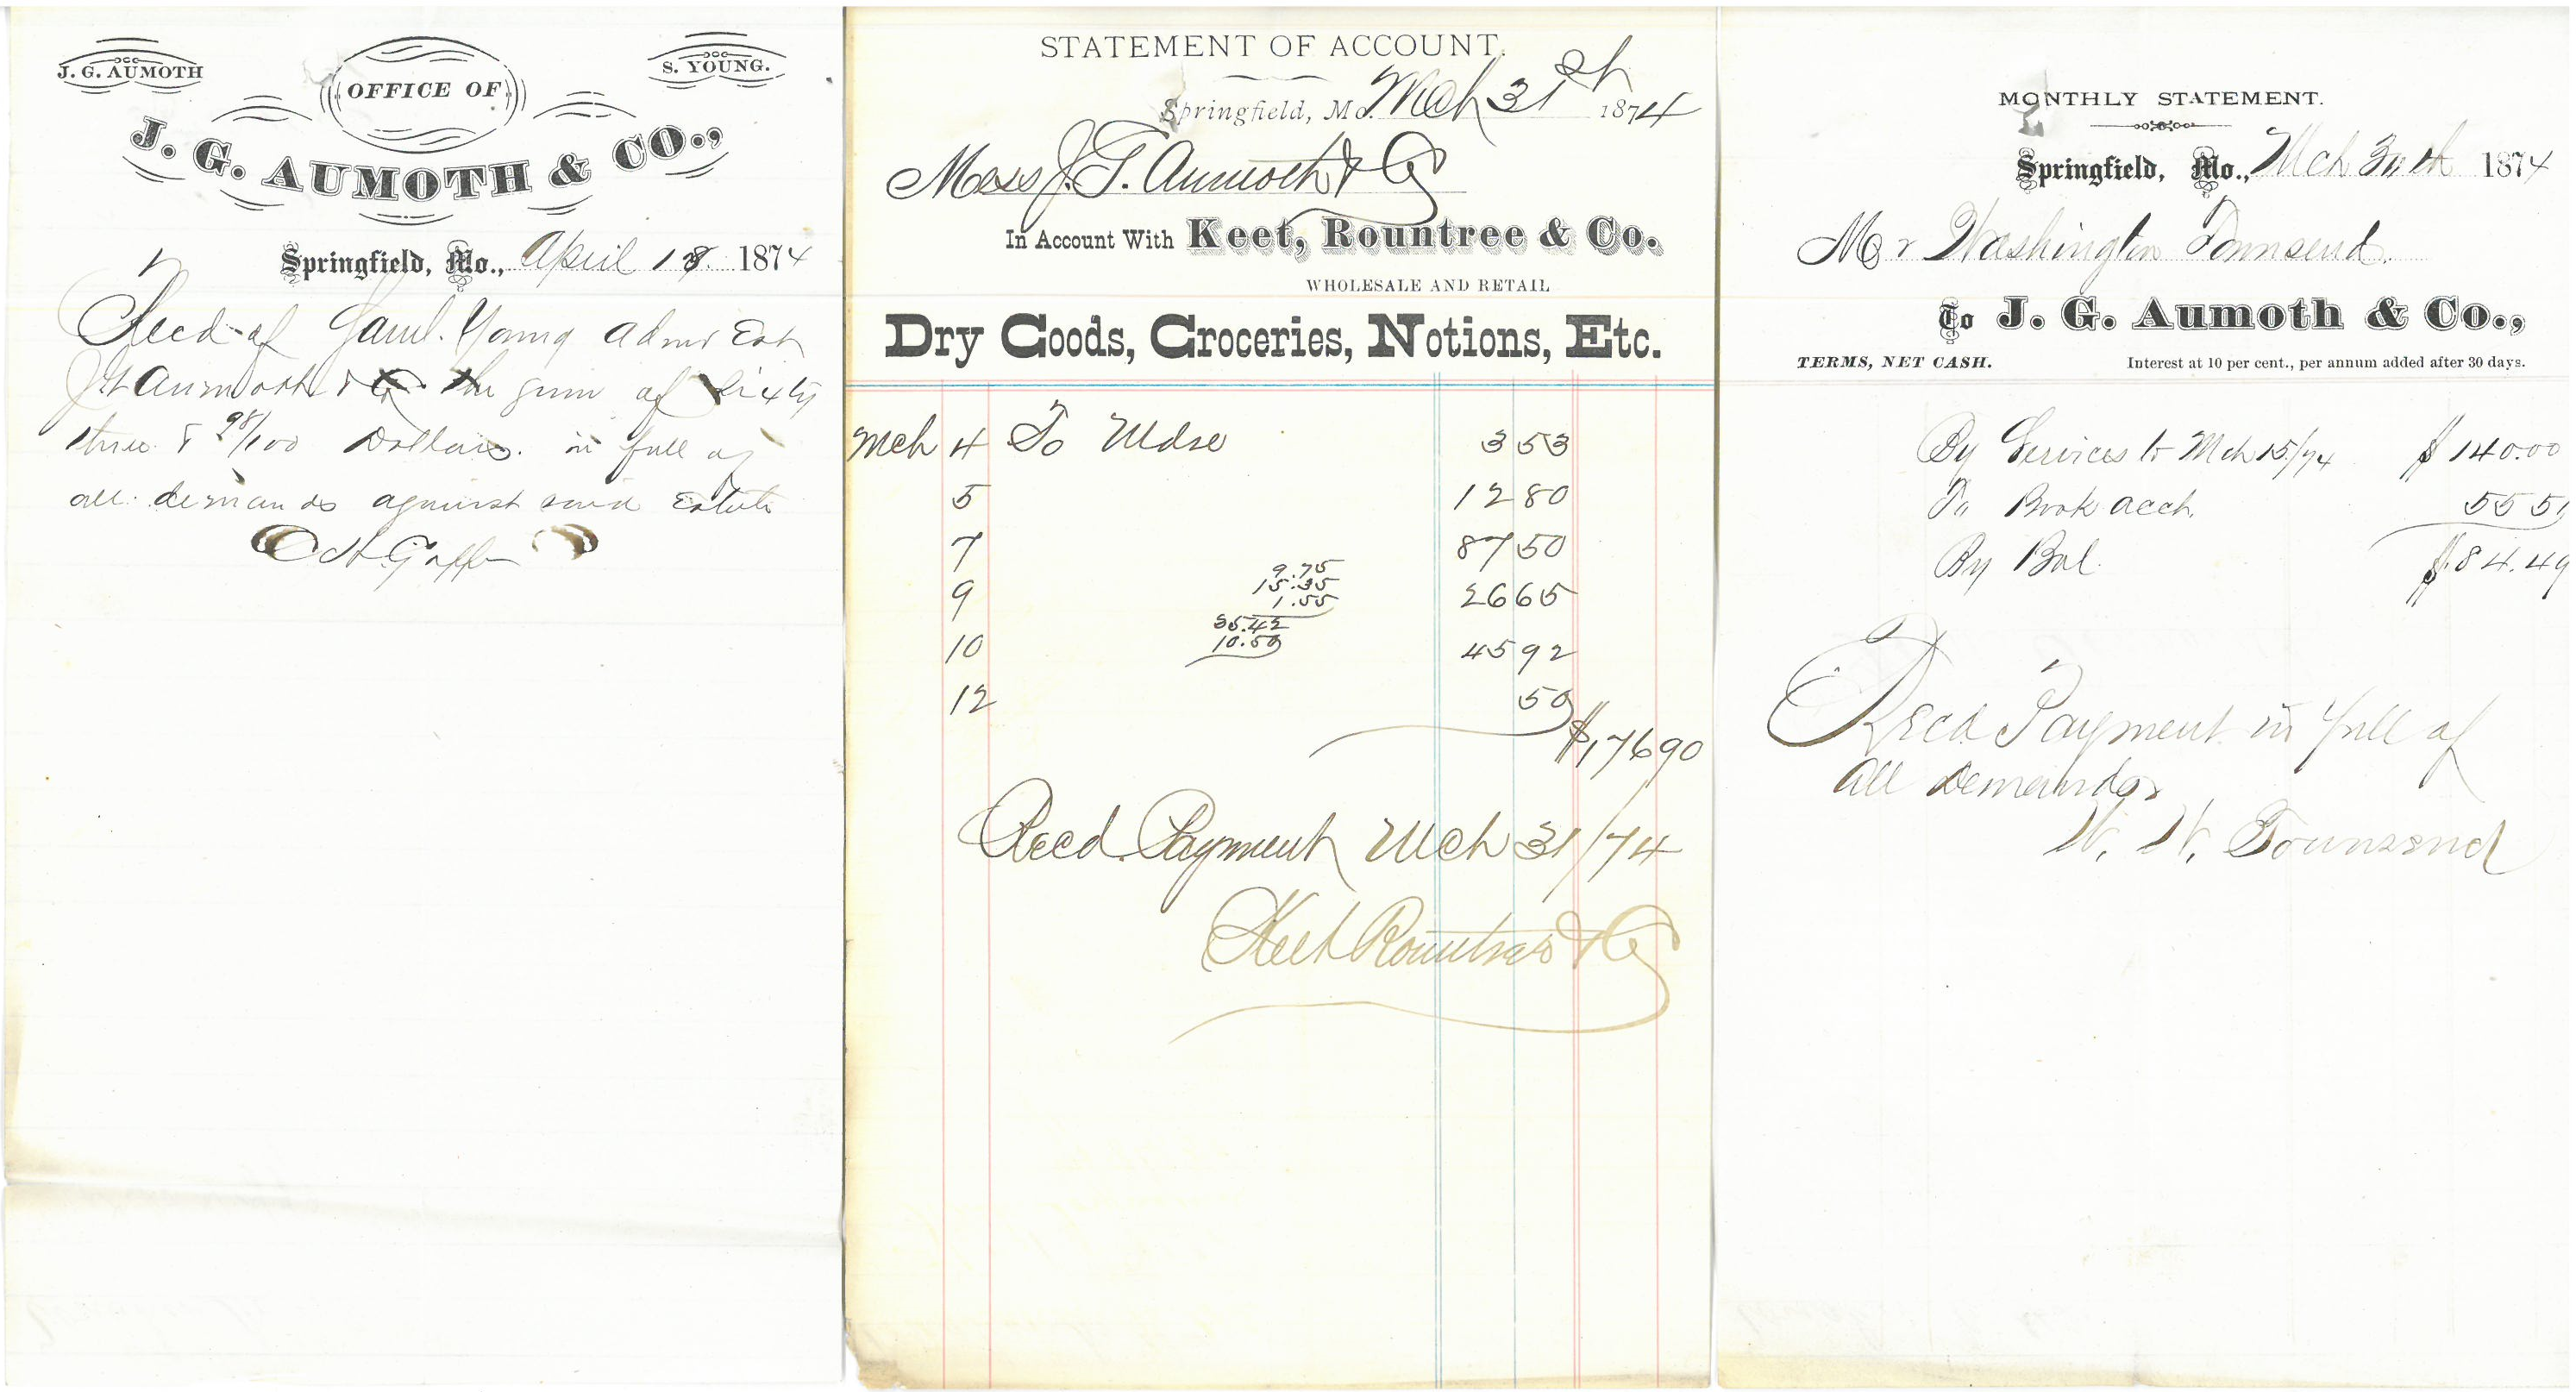 J. G. AUMOTH
S. YOUNG.
OFFICE OF
J. G. AUMOTH & CO.,
Springfield, Mo., April 18. 1874
Recd of Saml. Young Admr Est
J G Aumoth & Co the sum of Sixty
three & 98/100 Dollars. in full of
all demands against said Estate
STATEMENT OF ACCOUNT.
Springfield, Mo. Mch 31st 1874
Mess J. G. Aumoth & Co
In Account With Keet, Rountree & Co.
WHOLESALE AND RETAIL
Dry Goods, Groceries, Notions, Etc.
Mch 4 To Mdse 3 53
5 12 80
7 87 50
9.75
15.35
9 1.55 26 65
35.42
10.50
10 45 92
12 50
$176 90
Recd. Payment Mch 31/74
Keet Rountree & Co
MONTHLY STATEMENT.
Springfield, Mo., Mch 30th 1874
Mr Washington Townsend.
To J. G. Aumoth & Co.,
TERMS, NET CASH. Interest at 10 per cent., per annum added after 30 days.
By Services to Mch 15/74 $140.00
To Book acct. 55 51
By Bal. $84.49
Recd Payment in full of
all Demands
W. W. Townsend